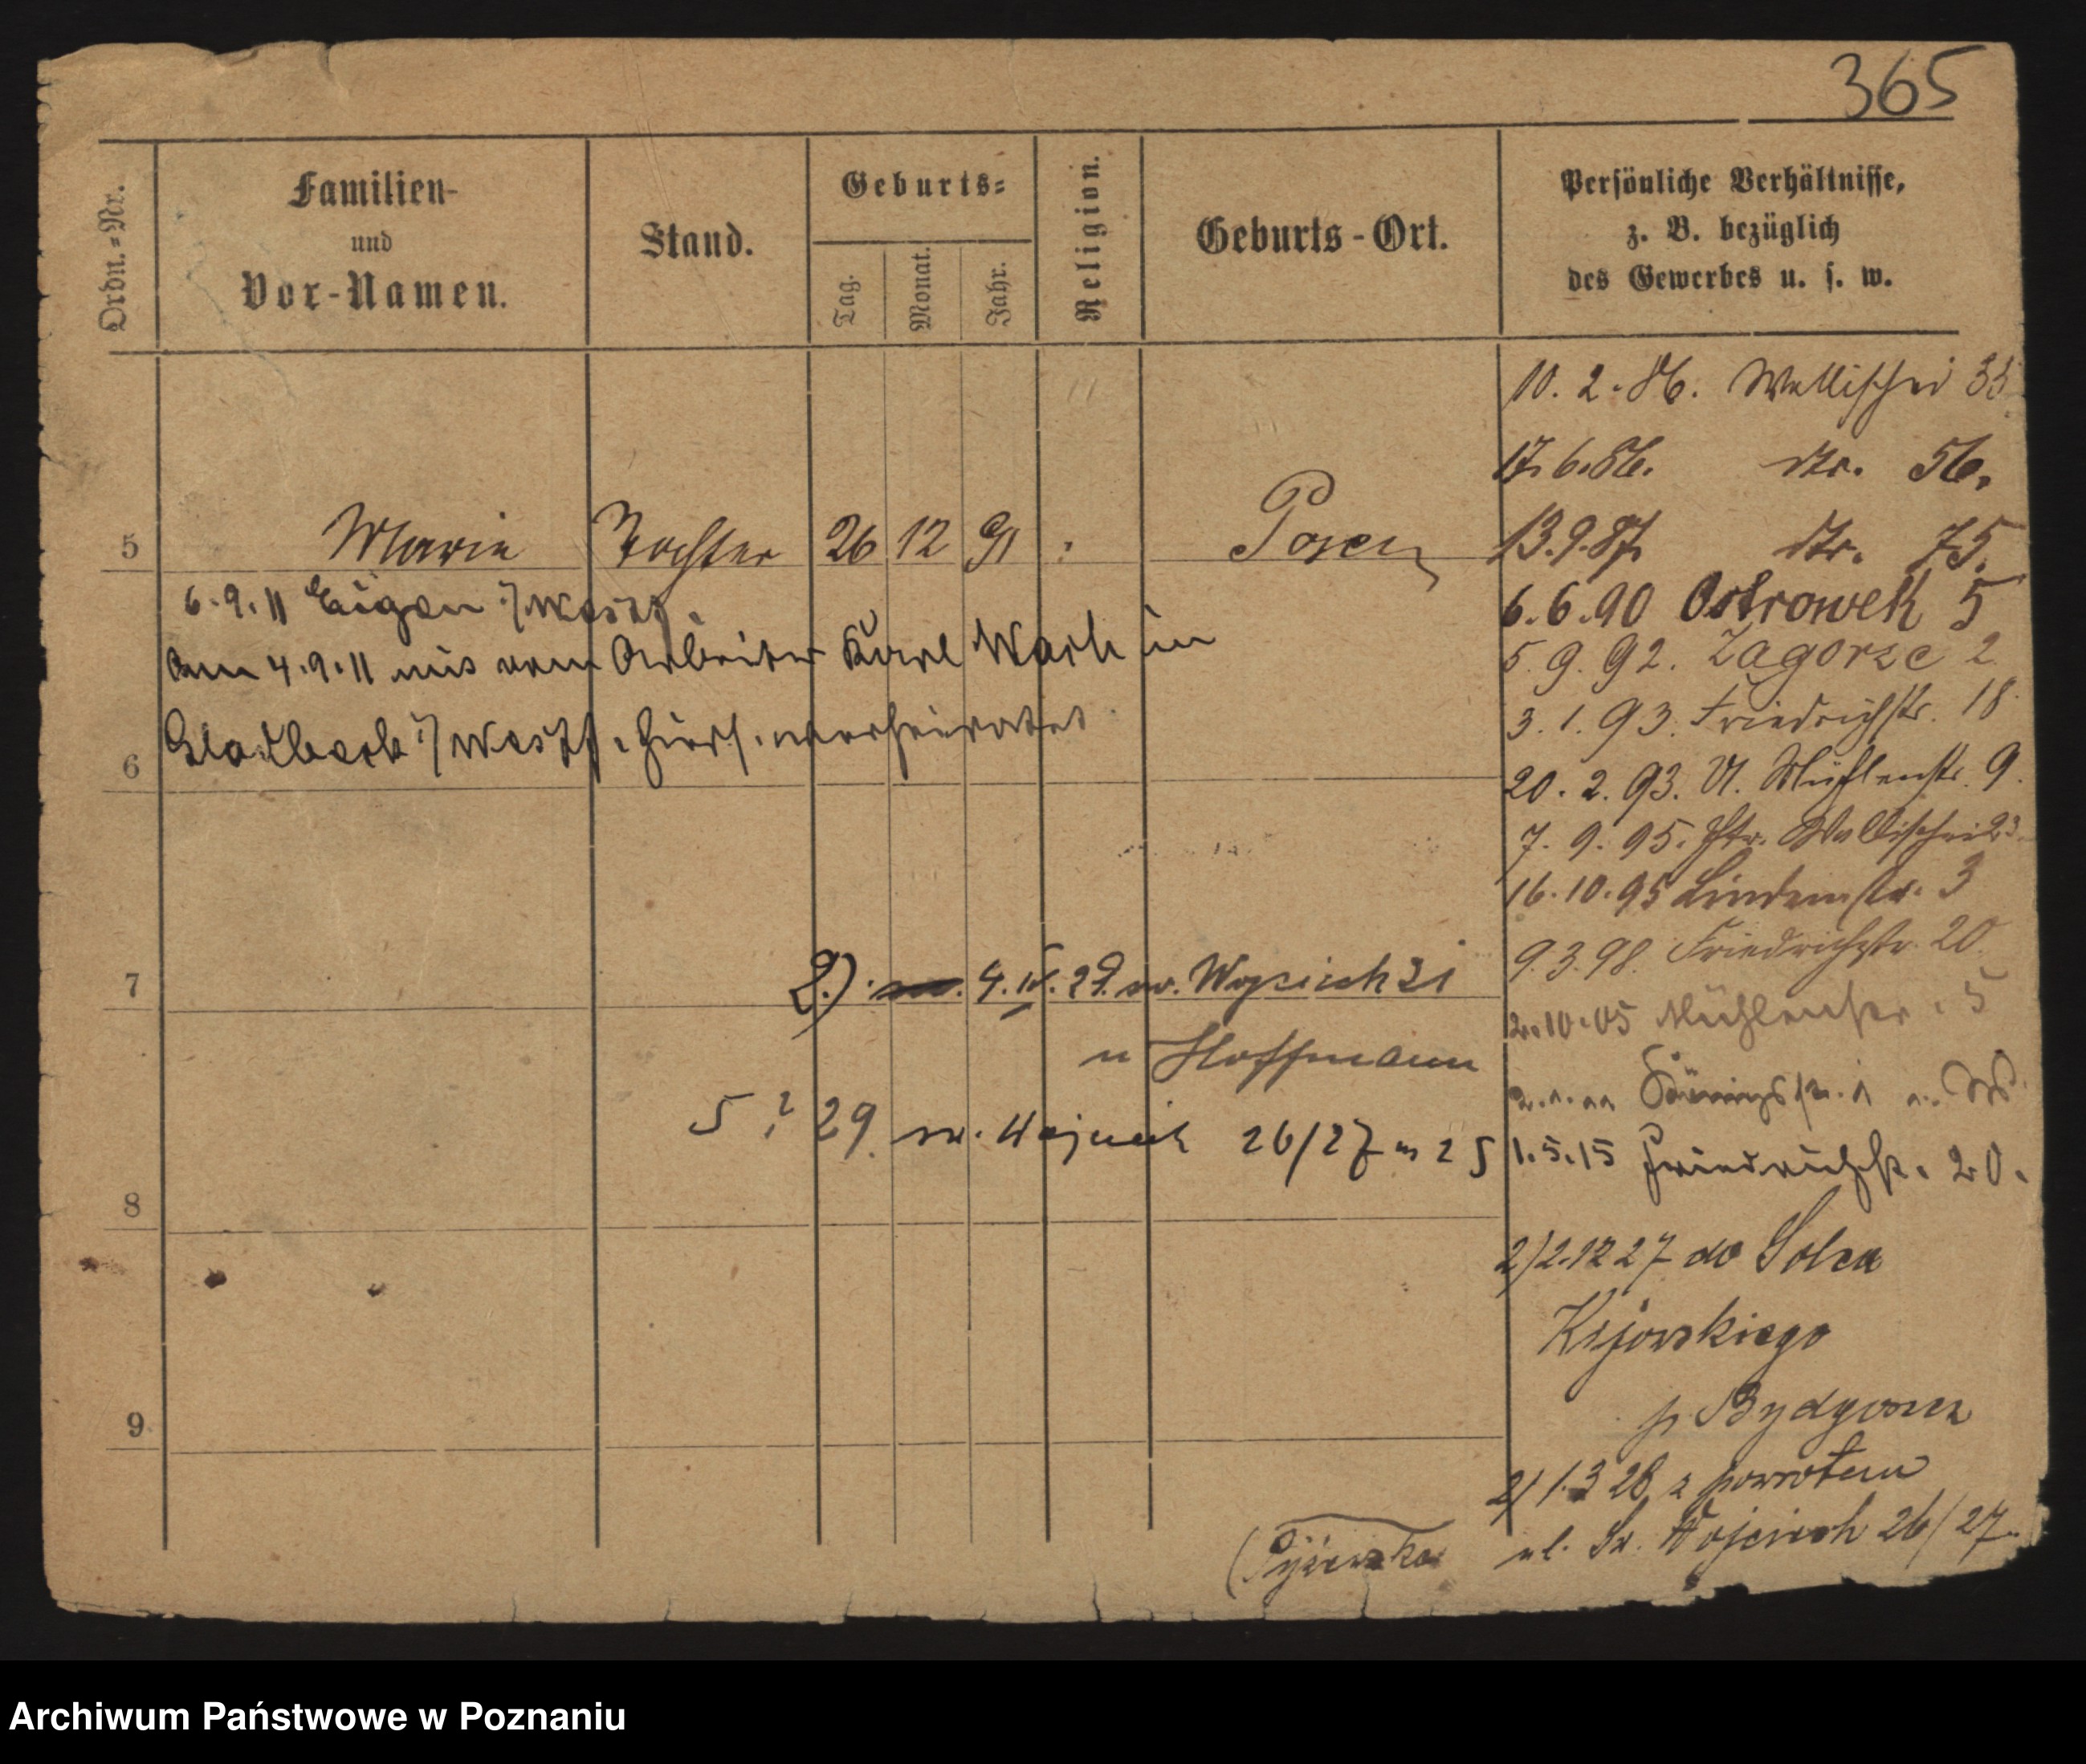 365
Ordn.-Nr.
Familien-
und
Vor-Namen.
Stand.
Geburts-
Tag.
Monat.
Jahr.
Religion.
Geburts-Ort.
Persönliche Verhältnisse,
z. B. bezüglich
des Gewerbes u. s. w.
5 Marie Tochter 26 12 91 Posen
6.9.11 Eigen i/Westf.
Am 4.9.11 mit dem Arbeiter Karl in
6 Gladbeck i/Westf. verheiratet
7
2.) 4.IV.29. św. Wojciech 31
u Hoffmann
5 ? 29. św. Wojciech 26/27 m 25
8
9
10.2.86. Wallischei 33
17.6.86. dto. 56.
13.9.87. dto. 75.
6.6.90 Ostrowek 5
5.9.92. Zagorze 2
3.1.93. Friedrichstr. 18
20.2.93. Mühlenstr. 9.
7.9.95. Wallischei 23
16.10.95 Lindenstr. 3
9.3.98. Friedrichstr. 20.
2.10.05 Mühlenstr. 5
Königstr.
1.5.15 Friedrichstr. 20.
2) 2.12 27 do Solca
Kijowskiego
p Bydgoszcz
2) 1.3 28 z powrotem
ul. Św. Wojciech 26/27
Archiwum Państwowe w Poznaniu